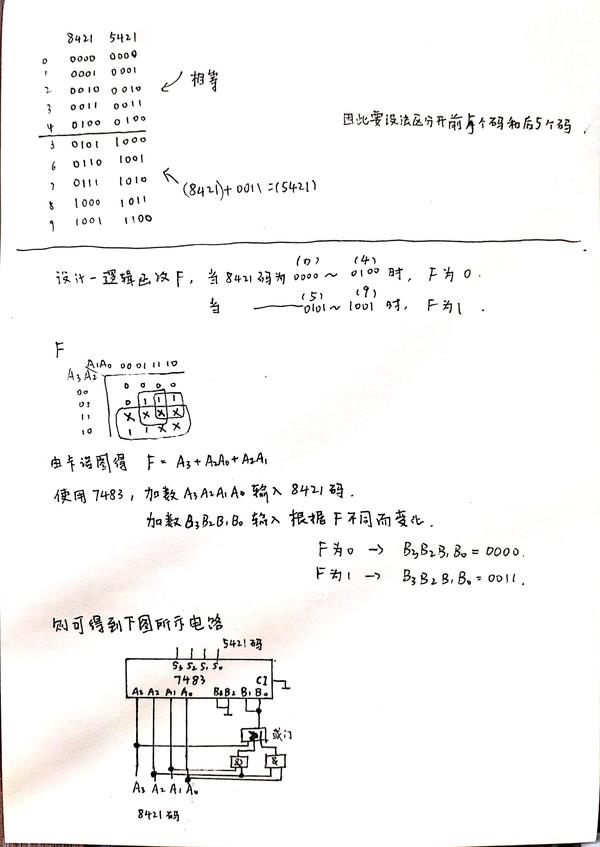 8421 5421
0 0000 0000
1 0001 0001
2 0010 0010
相等
3 0011 0011
4 0100 0100
因此要设法区分开前5个码和后5个码.
5 0101 1000
6 0110 1001
7 0111 1010
(8421)+0011=(5421)
8 1000 1011
9 1001 1100
(0) (4)
设计一逻辑函数F, 当8421码为0000~0100时, F为0.
(5) (9)
当 ——— 0101~1001时, F为1.
F
A1A0 00 01 11 10
A3A2
00 0 0 0 0
01 0 1 1 1
11 X X X X
10 1 1 X X
由卡诺图得 F=A3+A2A0+A2A1
使用7483, 加数A3A2A1A0输入8421码.
加数B3B2B1B0输入根据F不同而变化.
F为0 → B3B2B1B0=0000.
F为1 → B3B2B1B0=0011.
则可得到下图所示电路
5421码
S3 S2 S1 S0
7483 CI
A3 A2 A1 A0 B3 B2 B1 B0
≥1 或门
& &
A3 A2 A1 A0
8421码